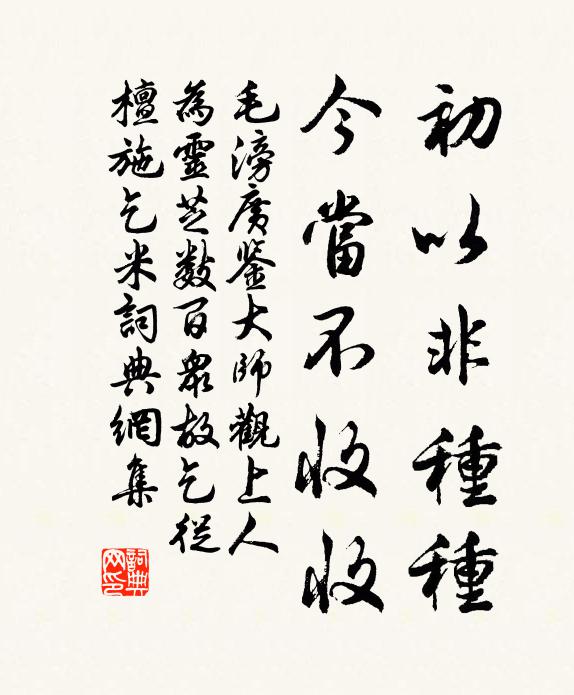 初以非種種
今當不收收
毛滂廣鉴大師觀上人
為靈芝數百衆故乞從
檀施乞米詞典網集
詞典網印